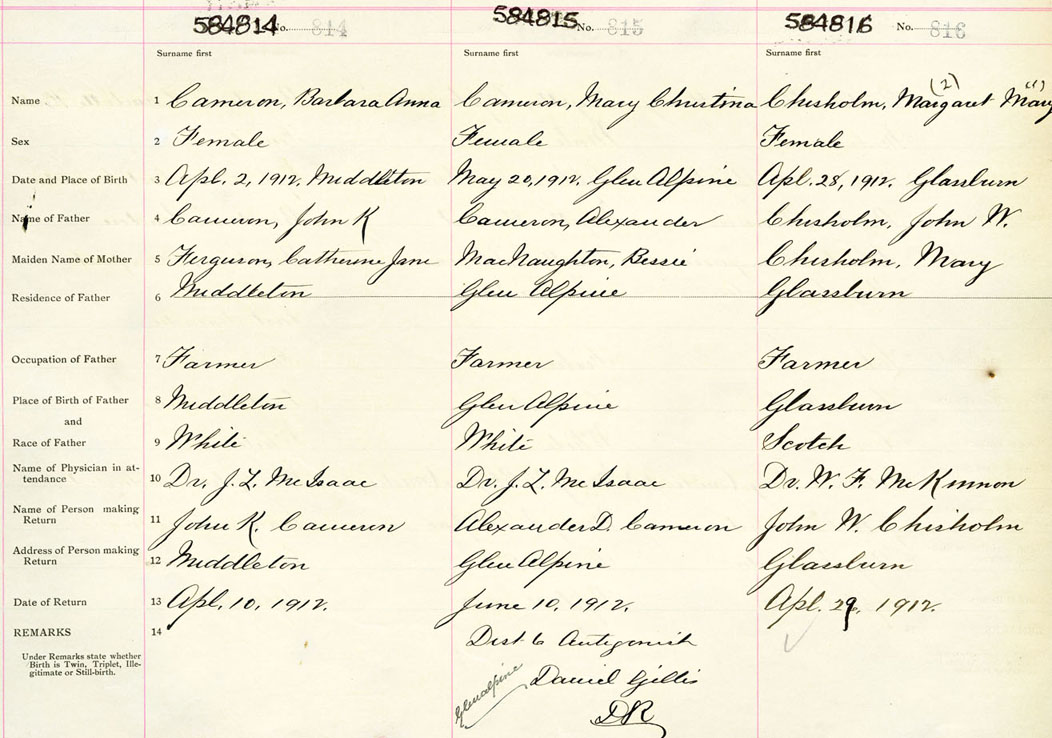 584814 No. 814 584815 No. 815 584816 No. 816
Surname first Surname first Surname first
Name 1 Cameron, Barbara Anna Cameron, Mary Christina Chisholm, (2) Margaret (1) Mary
Sex 2 Female Female Female
Date and Place of Birth 3 Apl. 2, 1912. Middleton May 20, 1912. Glen Alpine Apl. 28, 1912. Glassburn
Name of Father 4 Cameron, John K Cameron, Alexander Chisholm, John W.
Maiden Name of Mother 5 Ferguson, Catherine Jane MacNaughton, Bessie Chisholm, Mary
Residence of Father 6 Middleton Glen Alpine Glassburn
Occupation of Father 7 Farmer Farmer Farmer
Place of Birth of Father 8 Middleton Glen Alpine Glassburn
and
Race of Father 9 White White Scotch
Name of Physician in at-
tendance 10 Dr. J. L. McIsaac Dr. J. L. McIsaac Dr. W. F. McKinnon
Name of Person making
Return 11 John K. Cameron Alexander D. Cameron John W. Chisholm
Address of Person making
Return 12 Middleton Glen Alpine Glassburn
Date of Return 13 Apl. 10, 1912. June 10, 1912. Apl. 29, 1912.
REMARKS 14 Dist 6 Antigonish
Under Remarks state whether
Birth is Twin, Triplet, Ille-
gitimate or Still-birth.
Glenalpine Daniel Gillis
DR